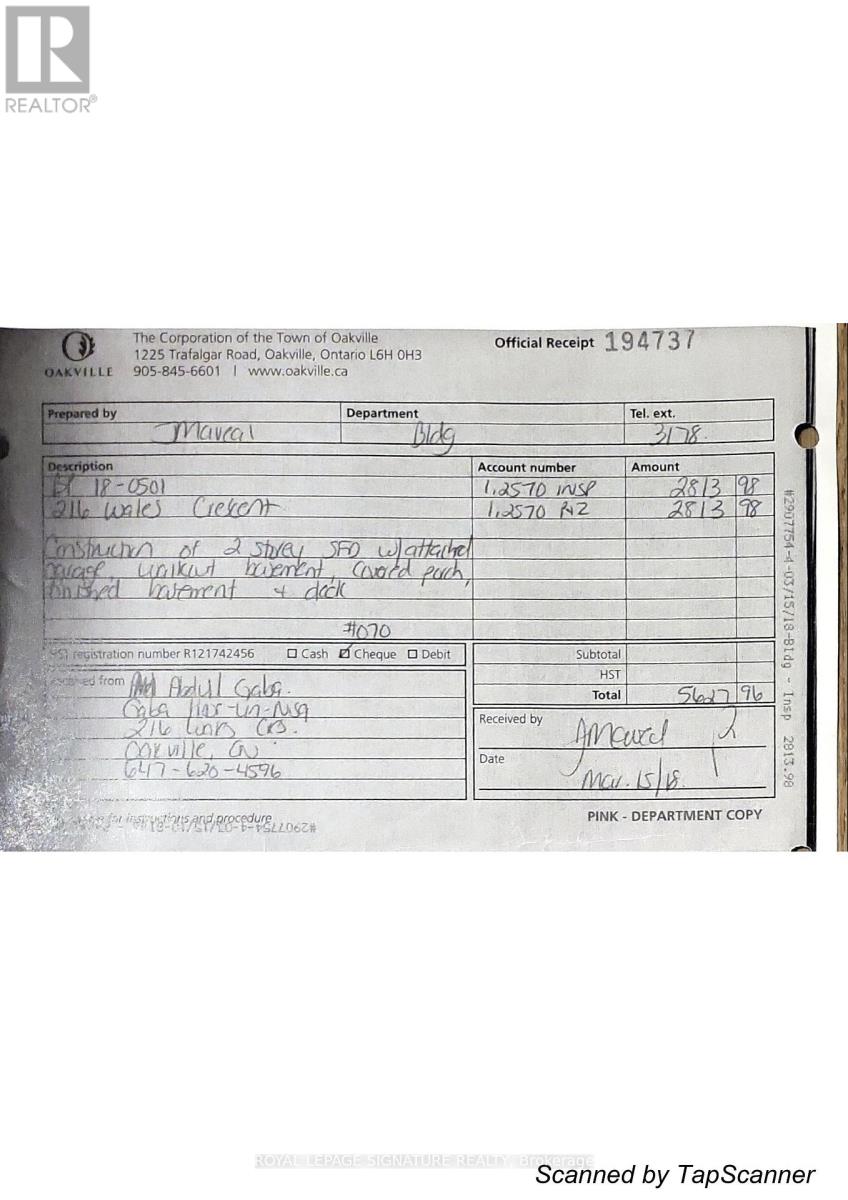 REALTOR®
The Corporation of the Town of Oakville
1225 Trafalgar Road, Oakville, Ontario L6H 0H3
OAKVILLE 905-845-6601 | www.oakville.ca
Official Receipt 194737
Prepared by Department Tel. ext.
Bldg 3178
Description Account number Amount
BP 18-0501 1.2570 INSP 2813 98
216 Wales Crescent 1.2570 2813 98
Construction of 2 storey SFD w/attached
garage, walkout basement, covered porch,
finished basement + deck
#070
registration number R121742456 Cash Cheque Debit
Subtotal
HST
Total 5627 96
from Abdul Gaba.
Gaba
216 Wales Crs.
Oakville, ON
647-620-4596
Received by
Date
Mar. 15/18.
for instructions and procedure
PINK - DEPARTMENT COPY
#2907754-4-03/15/18-Bldg - Insp 2813.98
ROYAL LEPAGE SIGNATURE REALTY, Brokerage
Scanned by TapScanner